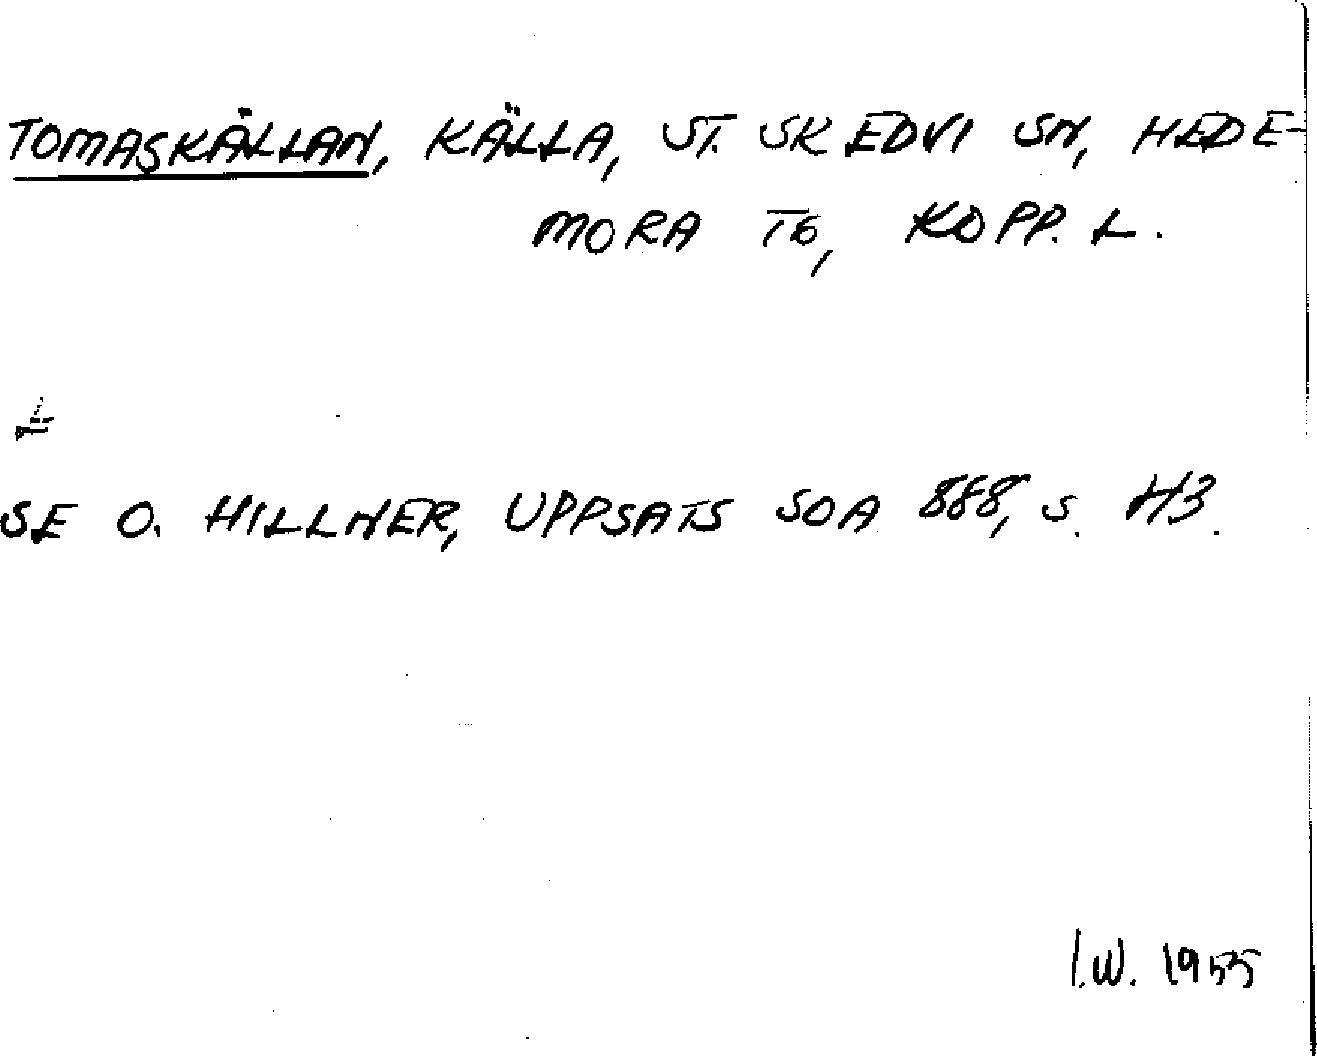 TOMASKÄLLAN, KÄLLA, ST. SKEDVI SN, HEDE-
MORA TG, KOPP. L.
SE O. HILLNER, UPPSATS SOA 888, S. 43.
I.W. 1955